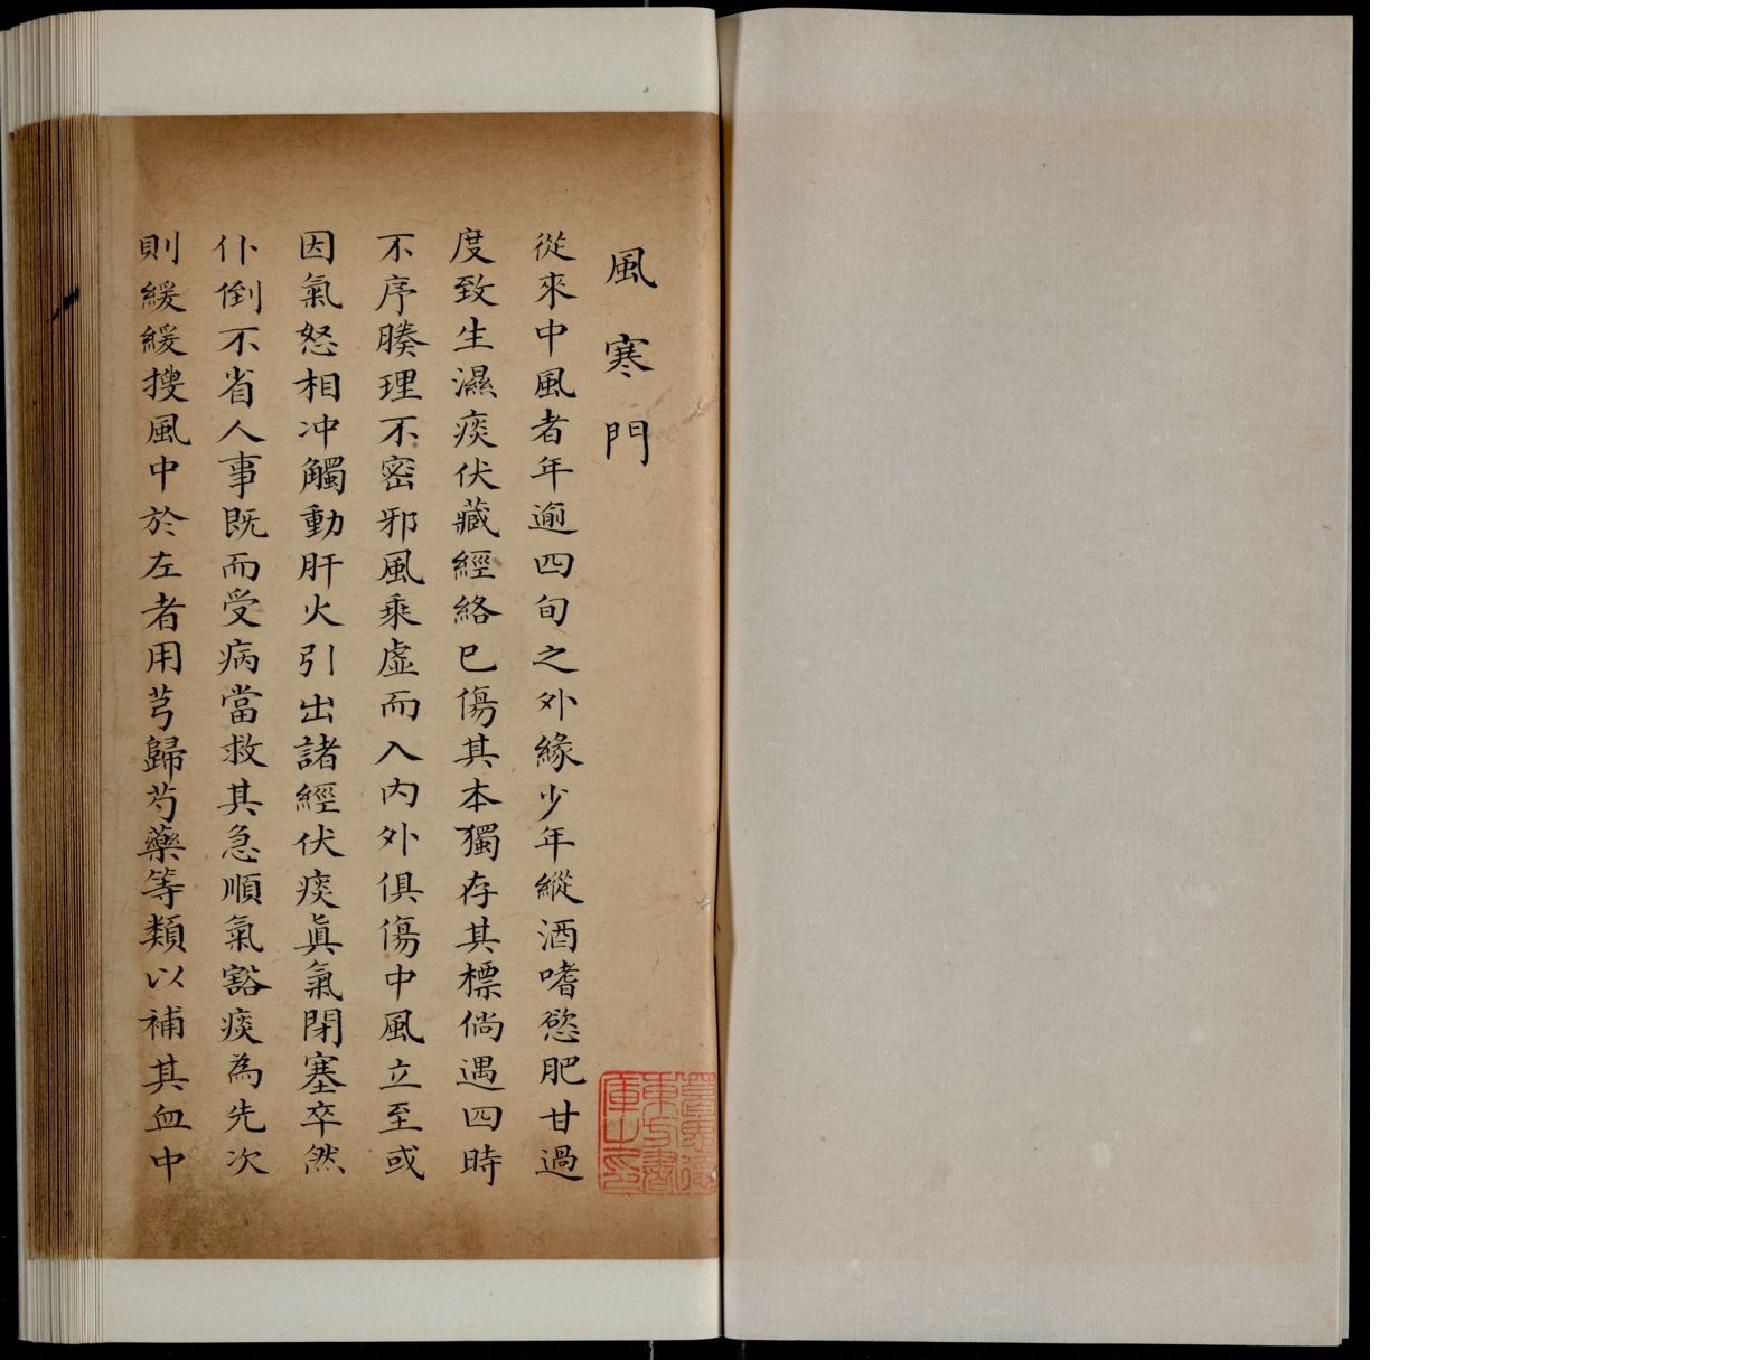 風寒門
從來中風者年逾四旬之外緣少年縱酒嗜慾肥甘過
度致生濕痰伏藏經絡已傷其本獨存其標倘遇四時
不序腠理不密邪風乘虛而入內外俱傷中風立至或
因氣怒相冲觸動肝火引出諸經伏痰眞氣閉塞卒然
仆倒不省人事既而受病當救其急順氣豁痰為先次
則緩緩搜風中於左者用芎歸芍藥等類以補其血中
葛思德
東方書
庫之印